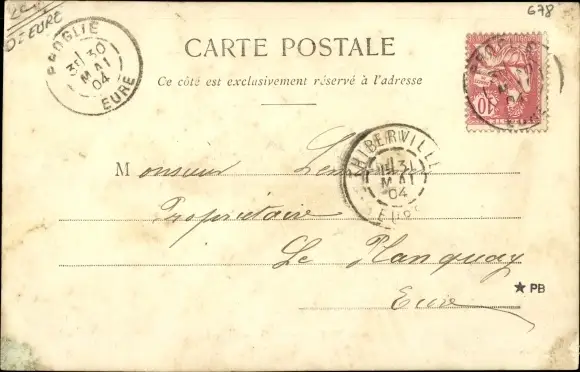 678
BROGLIE
30
MAI
04
EURE
CARTE POSTALE
Ce côté est exclusivement réservé à l'adresse
10
THIBERVILLE
31
MAI
04
EURE
Monsieur
Propriétaire
Le Planquay
Eure
★ PB